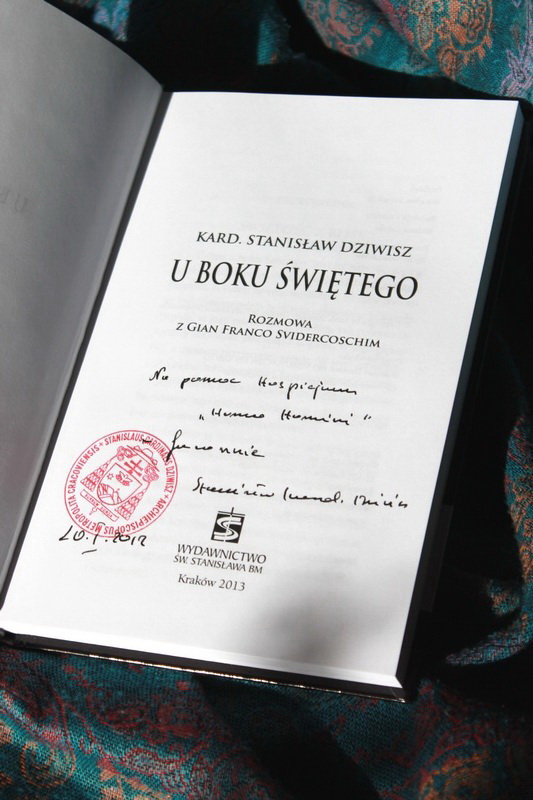 KARD. STANISŁAW DZIWISZ
U BOKU ŚWIĘTEGO
ROZMOWA
Z GIAN FRANCO SVIDERCOSCHIM
Na pomoc Hospicjum
„Homo Homini"
Stanisław kard. Dziwisz
STANISLAUS CARDINALIS DZIWISZ ARCHIEPISCOPUS METROPOLITA CRACOVIENSIS
WYDAWNICTWO
ŚW. STANISŁAWA BM
Kraków 2013